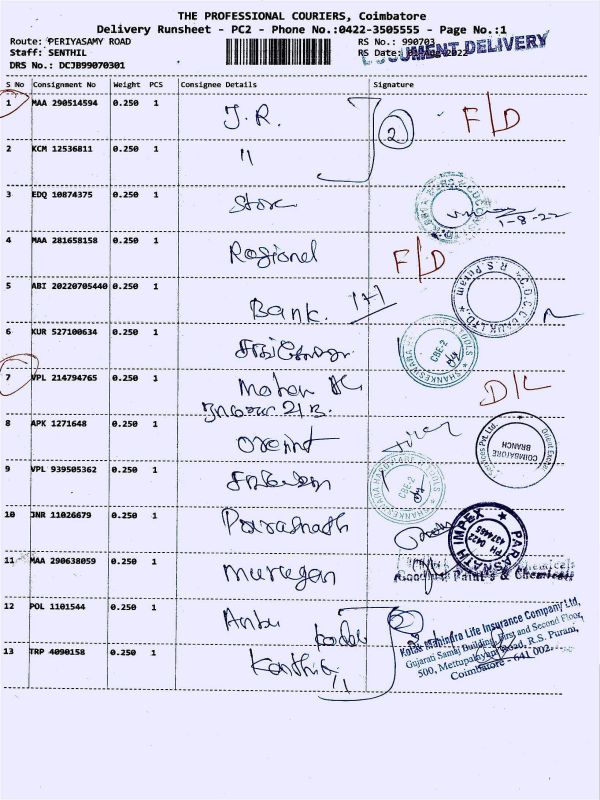 THE PROFESSIONAL COURIERS, Coimbatore
Delivery Runsheet - PC2 - Phone No.:0422-3505555 - Page No.:1
Route: PERIYASAMY ROAD RS No.: 990703
Staff: SENTHIL RS Date: 01-Aug-2022
DOCUMENT DELIVERY
DRS No.: DCJB99070301
S No Consignment No Weight PCS Consignee Details Signature
1 MAA 290514594 0.250 1 J.R. 2 F/D
2 KCM 12536811 0.250 1 "
3 EDQ 10874375 0.250 1 Store 1-8-22
4 MAA 281658158 0.250 1 Regional F/D
5 ABI 20220705440 0.250 1 Bank. 171
R.S. Puram
6 KUR 527100634 0.250 1
CBE-2
7 VPL 214794765 0.250 1 Mohan AC D/L
8 APK 1271648 0.250 1 orient
COIMBATORE BRANCH
9 VPL 939505362 0.250 1
CBE-2
10 JNR 11026679 0.250 1 Parasnath
PARASNATH IMPEX
PH 0422
4374485
11 MAA 290638059 0.250 1 murugan
Paints & Chemicals
12 POL 1101544 0.250 1 Anbu 2
13 TRP 4090158 0.250 1 "
Kotak Mahindra Life Insurance Company Ltd,
Gujarati Samaj Building, First and Second Floor,
500, Mettupalayam Road, R.S. Puram,
Coimbatore - 641 002